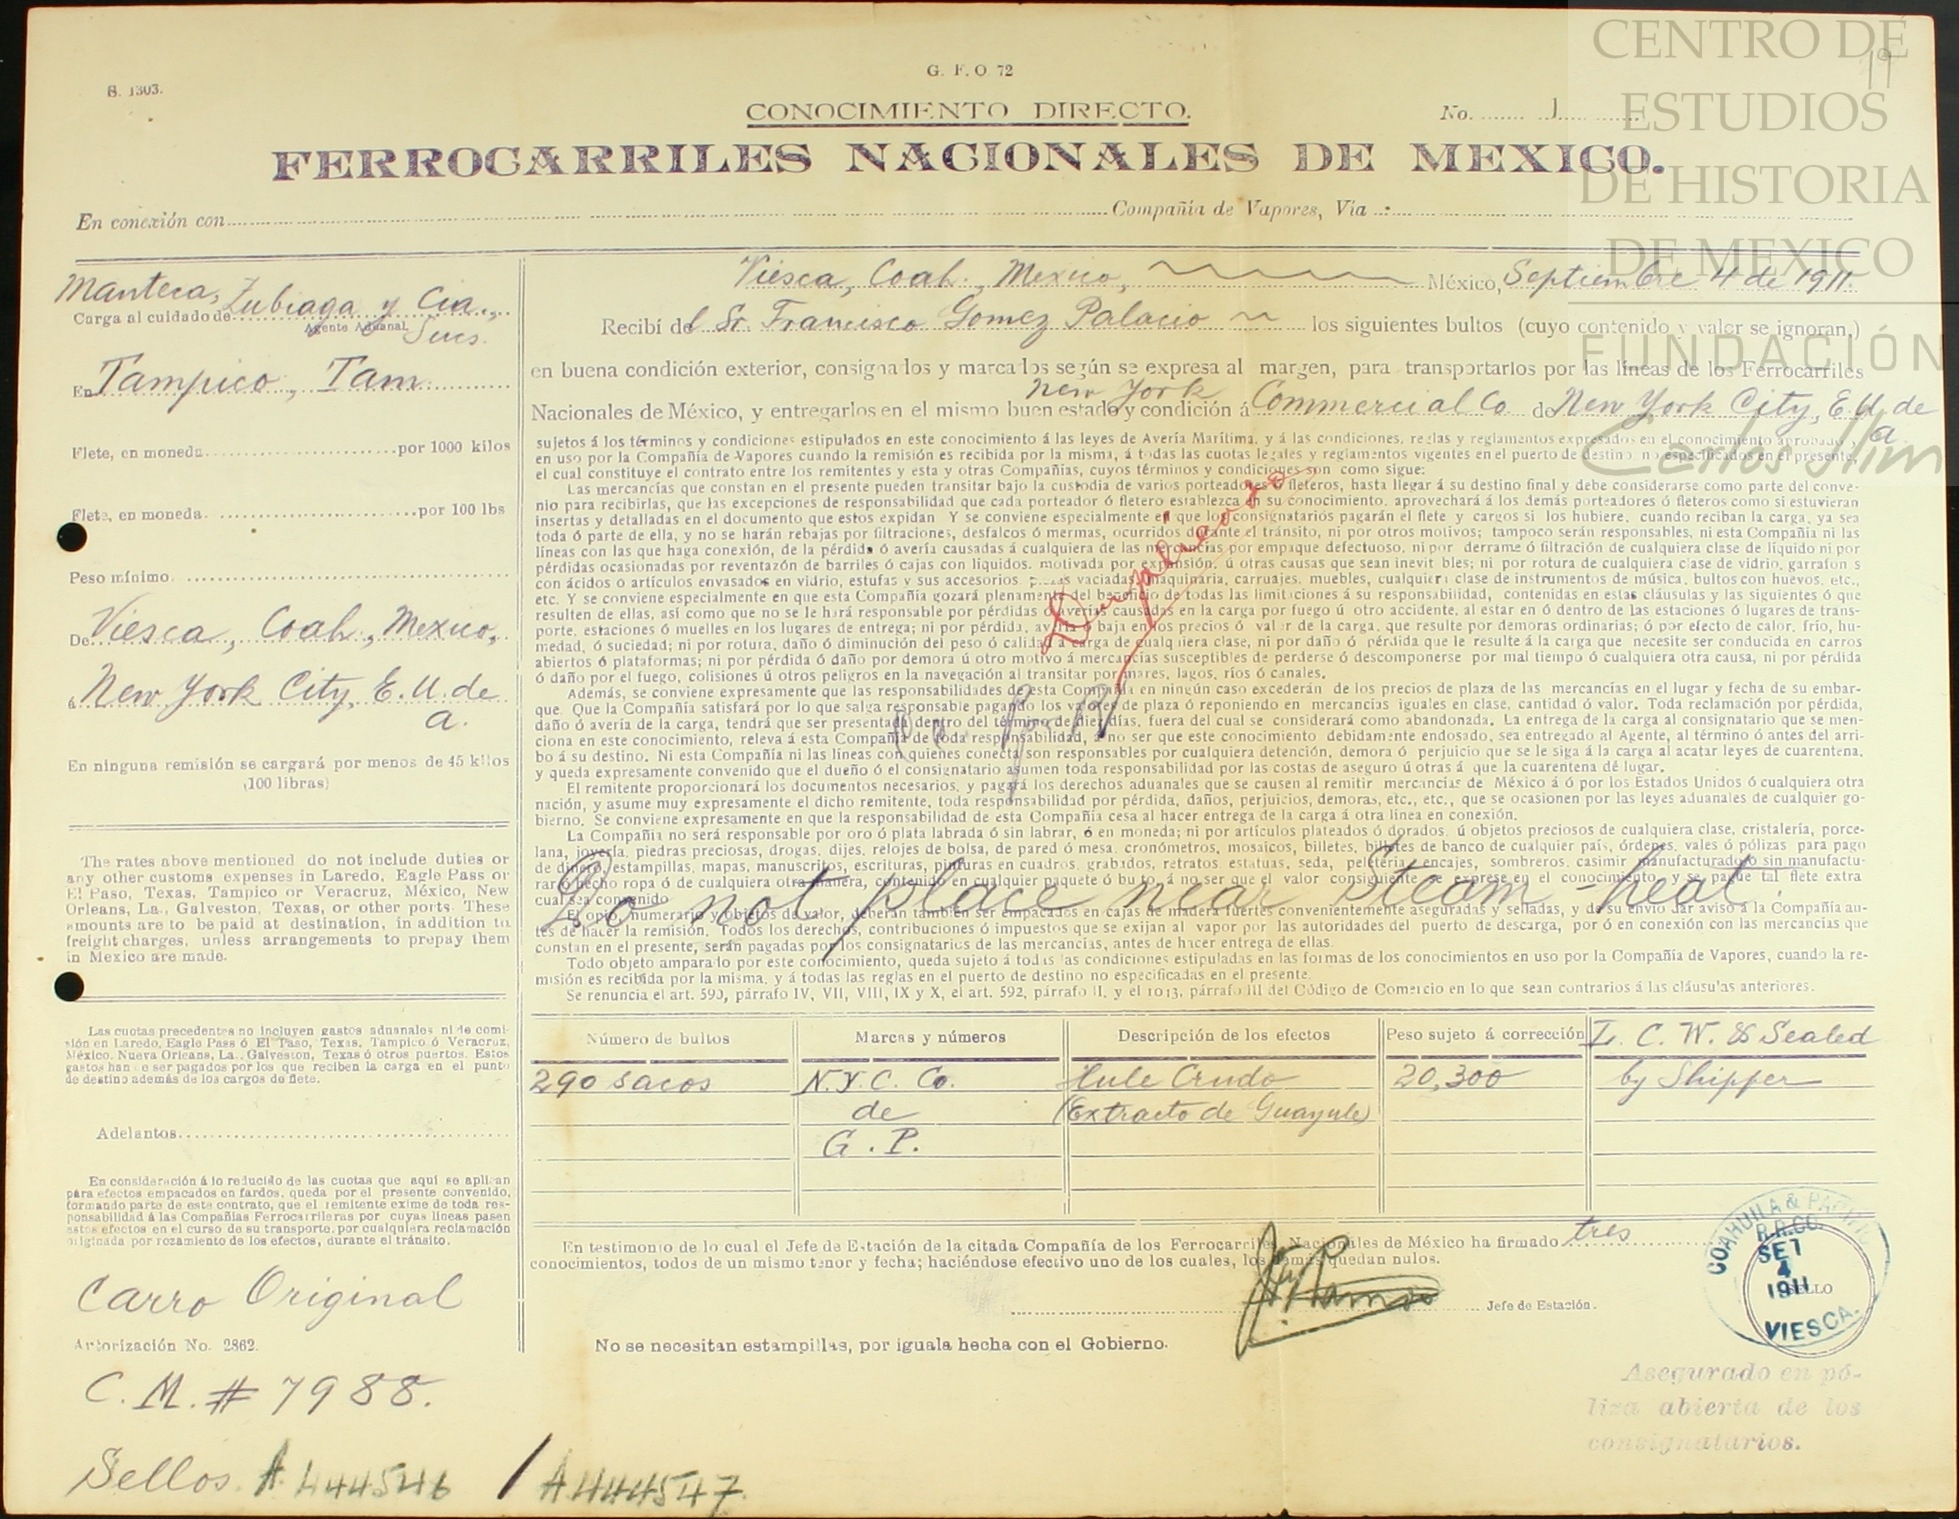 CENTRO DE
ESTUDIOS
DE HISTORIA
DE MEXICO
FUNDACIÓN
Carlos Slim
19
S. 1303.
G. F. O. 72
CONOCIMIENTO DIRECTO.
No. 1
FERROCARRILES NACIONALES DE MEXICO.
En conexión con Compañia de Vapores, Via
Manteca, Zubiaga y Cia.,
Carga al cuidado de
Agente Aduanal Sucs.
En Tampico, Tam.
Flete, en moneda por 1000 kilos
Flete, en moneda por 100 lbs
Peso mínimo
De Viesca, Coah., Mexico,
á New York City, E. U. de
a.
En ninguna remisión se cargará por menos de 45 kilos
(100 libras)
The rates above mentioned do not include duties or
any other customs expenses in Laredo, Eagle Pass or
El Paso, Texas, Tampico or Veracruz, México, New
Orleans, La., Galveston, Texas, or other ports. These
amounts are to be paid at destination, in addition to
freight charges, unless arrangements to prepay them
in Mexico are made.
Las cuotas precedentes no incluyen gastos aduanales ni de comi-
sión en Laredo, Eagle Pass ó El Paso, Texas, Tampico ó Veracruz,
México, Nueva Orleans, La., Galveston, Texas ó otros puertos. Estos
gastos han de ser pagados por los que reciben la carga en el punto
de destino además de los cargos de flete.
Adelantos
En consideración á lo reducido de las cuotas que aquí se aplican
para efectos empacados en fardos, queda por el presente convenido,
formando parte de este contrato, que el remitente exime de toda res-
ponsabilidad á las Compañias Ferrocarrileras por cuyas lineas pasen
estos efectos en el curso de su transporte, por cualquiera reclamación
originada por rozamiento de los efectos, durante el tránsito.
Carro Original
Autorización No. 2862.
C. M. # 7988.
Sellos. A 444546 / A 444547.
Viesca, Coah., Mexico, México, Septiembre 4 de 1911.
Recibí del Sr. Francisco Gomez Palacio los siguientes bultos (cuyo contenido y valor se ignoran,)
en buena condición exterior, consignados y marcados según se expresa al margen, para transportarlos por las líneas de los Ferrocarriles
New York
Nacionales de México, y entregarlos en el mismo buen estado y condición á Commercial Co de New York City, E. U. de
a.
sujetos á los términos y condiciones estipulados en este conocimiento á las leyes de Avería Marítima, y á las condiciones, reglas y reglamentos expresados en el conocimiento aprobado y
en uso por la Compañía de Vapores cuando la remisión es recibida por la misma, á todas las cuotas legales y reglamentos vigentes en el puerto de destino no especificados en el presente,
el cual constituye el contrato entre los remitentes y esta y otras Compañías, cuyos términos y condiciones son como sigue:
Las mercancías que constan en el presente pueden transitar bajo la custodia de varios porteadores ó fleteros, hasta llegar á su destino final y debe considerarse como parte del conve-
nio para recibirlas, que las excepciones de responsabilidad que cada porteador ó fletero establezca en su conocimiento, aprovechará á los demás porteadores ó fleteros como si estuvieran
insertas y detalladas en el documento que estos expidan Y se conviene especialmente en que los consignatarios pagarán el flete y cargos si los hubiere, cuando reciban la carga, ya sea
toda ó parte de ella, y no se harán rebajas por filtraciones, desfalcos ó mermas, ocurridos durante el tránsito, ni por otros motivos; tampoco serán responsables, ni esta Compañía ni las
líneas con las que haga conexión, de la pérdida ó avería causadas á cualquiera de las mercancías por empaque defectuoso, ni por derrame ó filtración de cualquiera clase de líquido ni por
pérdidas ocasionadas por reventazón de barriles ó cajas con líquidos, motivada por expansión, ú otras causas que sean inevitables; ni por rotura de cualquiera clase de vidrio, garrafones
con ácidos ó artículos envasados en vidrio, estufas y sus accesorios vaciadas, maquinaria, carruajes, muebles, cualquiera clase de instrumentos de música, bultos con huevos, etc.,
etc. Y se conviene especialmente en que esta Compañía gozará plenamente del beneficio de todas las limitaciones á su responsabilidad, contenidas en estas cláusulas y las siguientes ó que
resulten de ellas, así como que no se le hará responsable por pérdidas ó averías causadas en la carga por fuego ú otro accidente, al estar en ó dentro de las estaciones ó lugares de trans-
porte, estaciones ó muelles en los lugares de entrega; ni por pérdida, avería ó baja en los precios ó valor de la carga, que resulte por demoras ordinarias; ó por efecto de calor, frío, hu-
medad, ó suciedad; ni por rotura, daño ó diminución del peso ó calidad á carga de cualquiera clase, ni por daño ó pérdida que le resulte á la carga que necesite ser conducida en carros
abiertos ó plataformas; ni por pérdida ó daño por demora ú otro motivo á mercancías susceptibles de perderse ó descomponerse por mal tiempo ó cualquiera otra causa, ni por pérdida
ó daño por el fuego, colisiones ú otros peligros en la navegación al transitar por mares, lagos, ríos ó canales.
Además, se conviene expresamente que las responsabilidades de esta Compañía en ningún caso excederán de los precios de plaza de las mercancías en el lugar y fecha de su embar-
que. Que la Compañía satisfará por lo que salga responsable pagando los valores de plaza ó reponiendo en mercancías iguales en clase, cantidad ó valor. Toda reclamación por pérdida,
daño ó avería de la carga, tendrá que ser presentada dentro del término de diez días, fuera del cual se considerará como abandonada. La entrega de la carga al consignatario que se men-
ciona en este conocimiento, releva á esta Compañía de toda responsabilidad, á no ser que este conocimiento debidamente endosado, sea entregado al Agente, al término ó antes del arri-
bo á su destino. Ni esta Compañía ni las líneas con quienes conecta son responsables por cualquiera detención, demora ó perjuicio que se le siga á la carga al acatar leyes de cuarentena,
y queda expresamente convenido que el dueño ó el consignatario asumen toda responsabilidad por las costas de aseguro ú otras á que la cuarentena dé lugar.
El remitente proporcionará los documentos necesarios, y pagará los derechos aduanales que se causen al remitir mercancías de México á ó por los Estados Unidos ó cualquiera otra
nación, y asume muy expresamente el dicho remitente, toda responsabilidad por pérdida, daños, perjuicios, demoras, etc., etc., que se ocasionen por las leyes aduanales de cualquier go-
bierno. Se conviene expresamente en que la responsabilidad de esta Compañía cesa al hacer entrega de la carga á otra línea en conexión.
La Compañía no será responsable por oro ó plata labrada ó sin labrar, ó en moneda; ni por artículos plateados ó dorados, ú objetos preciosos de cualquiera clase, cristalería, porce-
lana, joyería, piedras preciosas, drogas, dijes, relojes de bolsa, de pared ó mesa, cronómetros, mosaicos, billetes, billetes de banco de cualquier país, órdenes, vales ó pólizas para pago
de dinero, estampillas, mapas, manuscritos, escrituras, pinturas en cuadros, grabados, retratos estatuas, seda, peletería, encajes, sombreros, casimir manufacturado ó sin manufactu-
rar ó hecho ropa ó de cualquiera otra manera, contenido en cualquier paquete ó bulto, á no ser que el valor consiguiente se exprese en el conocimiento, y se pague tal flete extra
cual sea contenido
Do not place near Steam-heat.
El opio, numerario y objetos de valor, deberán también ser empacados en cajas de madera fuertes convenientemente aseguradas y selladas, y de su envío dar aviso á la Compañía an-
tes de hacer la remisión. Todos los derechos, contribuciones ó impuestos que se exijan al vapor por las autoridades del puerto de descarga, por ó en conexión con las mercancías que
constan en el presente, serán pagadas por los consignatarios de las mercancías, antes de hacer entrega de ellas.
Todo objeto amparado por este conocimiento, queda sujeto á todas las condiciones estipuladas en las formas de los conocimientos en uso por la Compañía de Vapores, cuando la re-
misión es recibida por la misma, y á todas las reglas en el puerto de destino no especificadas en el presente.
Se renuncia el art. 590, párrafo IV, VII, VIII, IX y X, el art. 592, párrafo II, y el 1013, párrafo III del Código de Comercio en lo que sean contrarios á las cláusulas anteriores.
Duplicado
Número de bultos Marcas y números Descripción de los efectos Peso sujeto á corrección L. C. W. & Sealed
290 sacos N. Y. C. Co. Hule Crudo 20,300 by Shipper
de (Extracto de Guayule)
G. P.
En testimonio de lo cual el Jefe de Estación de la citada Compañía de los Ferrocarriles Nacionales de México ha firmado tres
conocimientos, todos de un mismo tenor y fecha; haciéndose efectivo uno de los cuales, los demás quedan nulos.
Jefe de Estación.
No se necesitan estampillas, por iguala hecha con el Gobierno.
COAHUILA & PACIFIC
R.R.CO.
SET
4
1911
SELLO
VIESCA.
Asegurado en pó-
liza abierta de los
consignatarios.